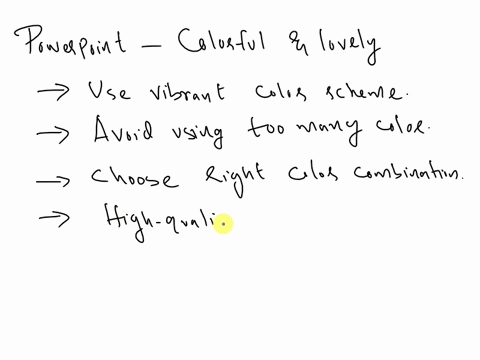 Powerpoint - Colorful & lovely
→ Use vibrant color scheme.
→ Avoid using too many color.
→ Choose right color combination.
→ High-quali